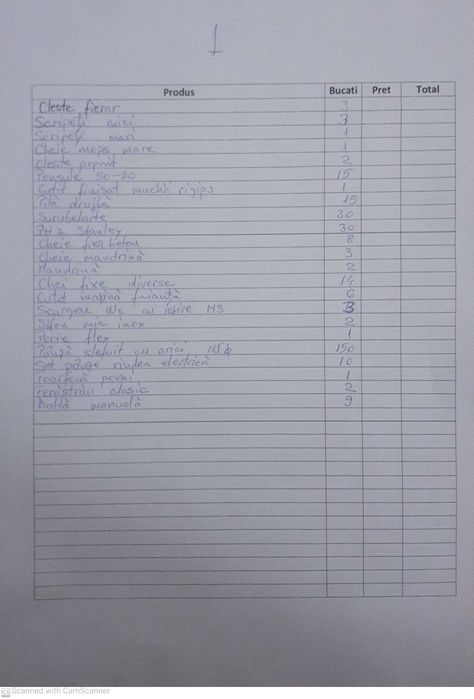 1
Produs Bucati Pret Total
Cleste fierar 3
Scripeți mici 3
Scripete mari 1
Cheie mops mare 1
Cleste popnit 2
Pensule 50-80 15
Cutit finisat muchii rigips 1
Pilă drujbă 15
Surubelnite 30
PH2 Stanley 30
Cheie fier beton 8
Cheie mandrină 3
Mandrină 2
Chei fixe diverse 14
Cutit mașină faianță 6
Scurgere cu iesire M3 3
Sifon mic inox 2
Perie flex 1
Pânză slefuit cu arici 115ϕ 150
Set pânze rindea electrică 10
Foarfecă pomi 1
Ferăstrău clasic 2
Daltă manuală 9
Scanned with CamScanner